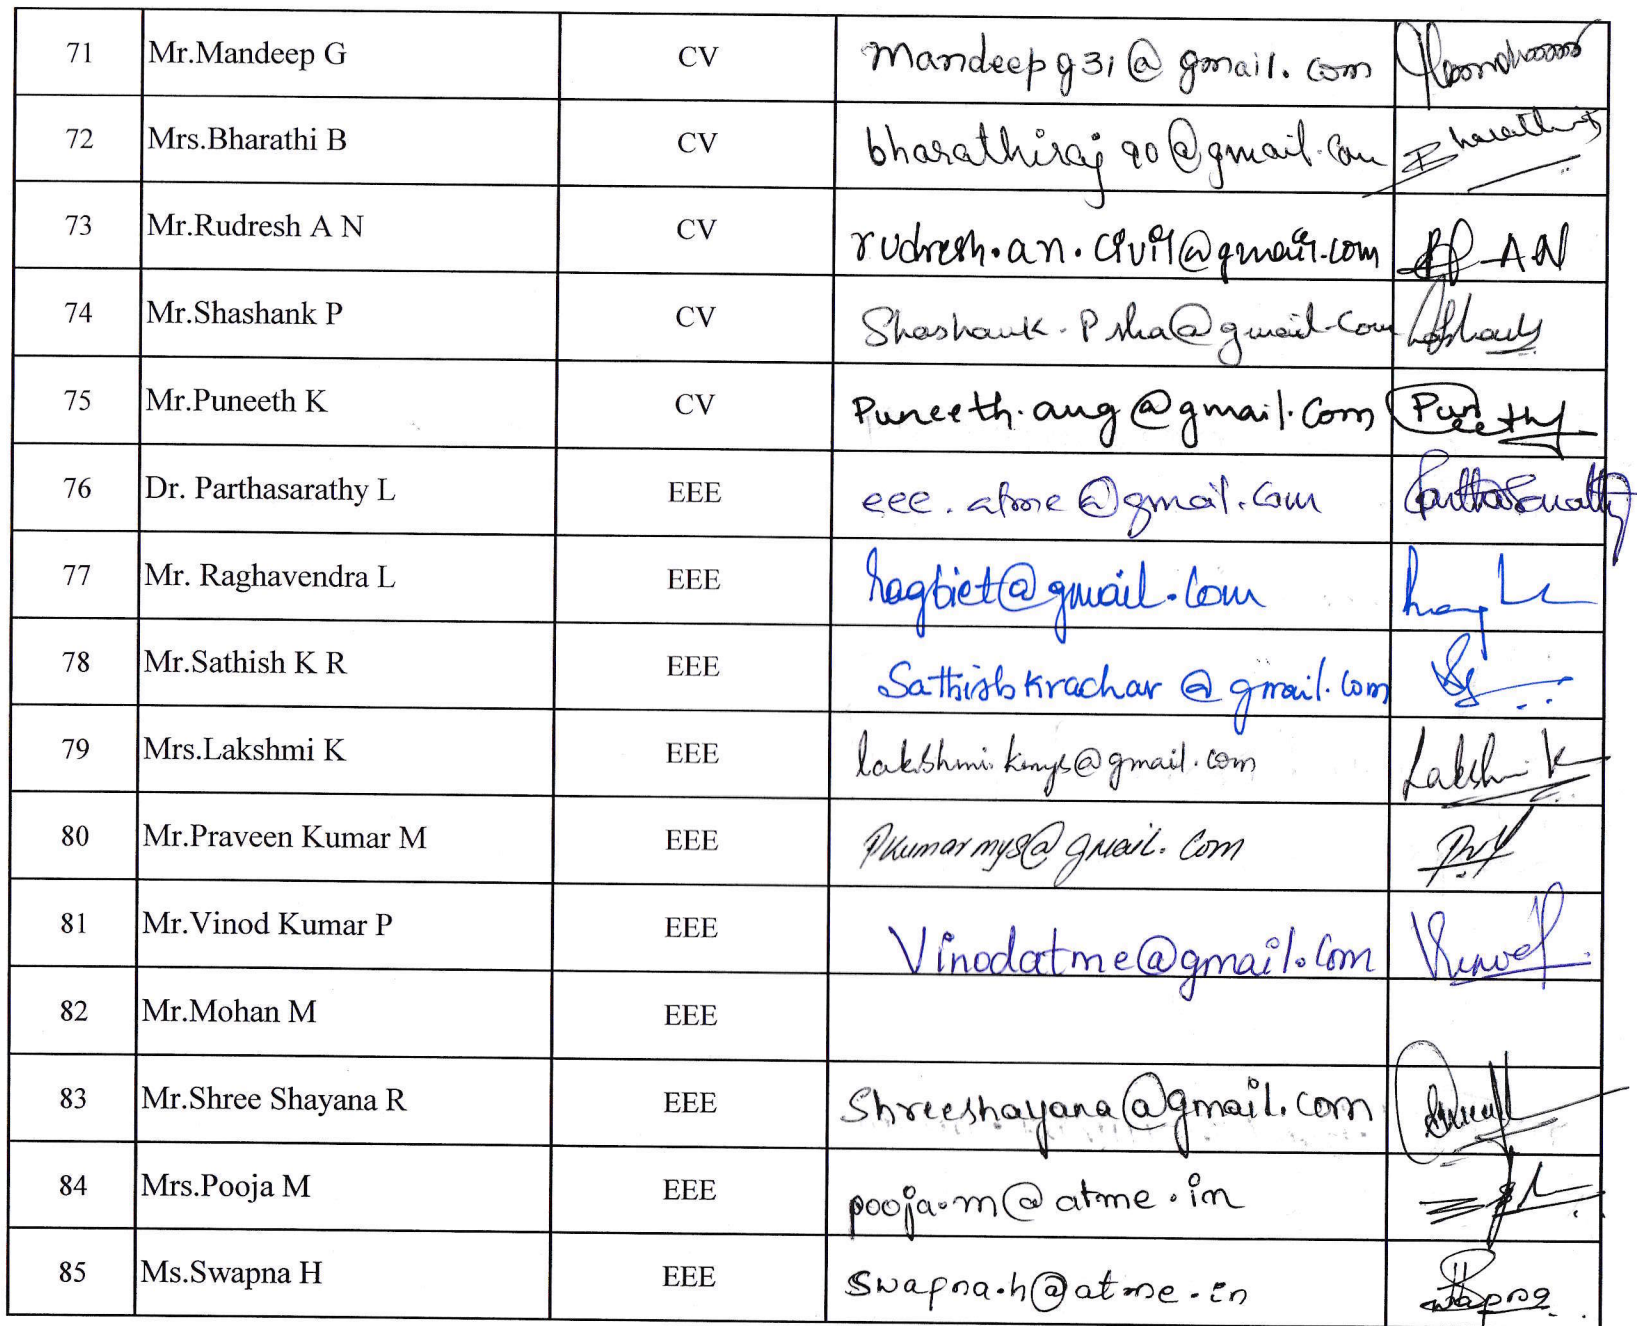 71 Mr.Mandeep G CV mandeepg31@gmail.com
72 Mrs.Bharathi B CV bharathiraj90@gmail.com Bharathi
73 Mr.Rudresh A N CV rudresh.an.civil@gmail.com A.N
74 Mr.Shashank P CV Shashank.Psha@gmail.com
75 Mr.Puneeth K CV Puneeth.aug@gmail.com Puneeth
76 Dr. Parthasarathy L EEE eee.atme@gmail.com Parthasarathy
77 Mr. Raghavendra L EEE ragbiet@gmail.com
78 Mr.Sathish K R EEE Sathishkrachar@gmail.com
79 Mrs.Lakshmi K EEE lakshmi.kmys@gmail.com Lakshmi K
80 Mr.Praveen Kumar M EEE Pkumarmys@gmail.com
81 Mr.Vinod Kumar P EEE Vinodatme@gmail.com
82 Mr.Mohan M EEE
83 Mr.Shree Shayana R EEE Shreeshayana@gmail.com
84 Mrs.Pooja M EEE pooja.m@atme.in
85 Ms.Swapna H EEE Swapna.h@atme.in Swapna